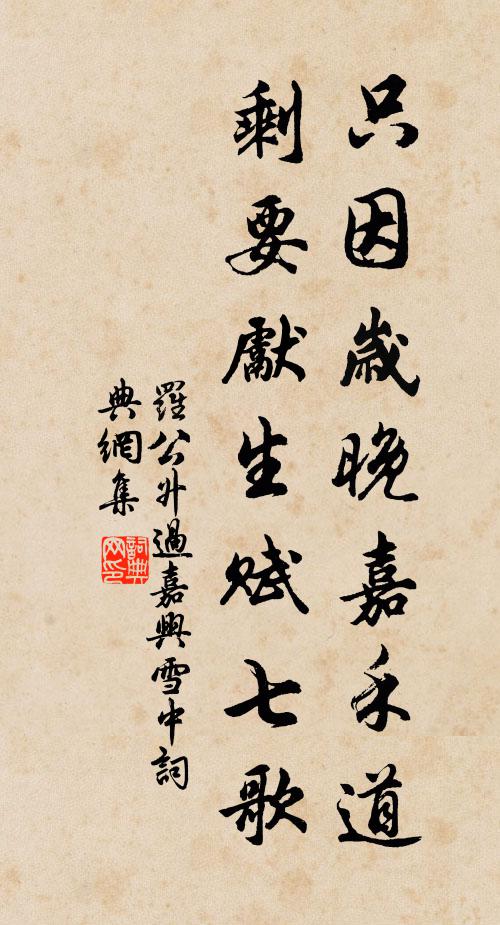 只因歲晚嘉禾道
剩要獻生賦七歌
羅公升過嘉興雪中詞
典網集
詞典
网印